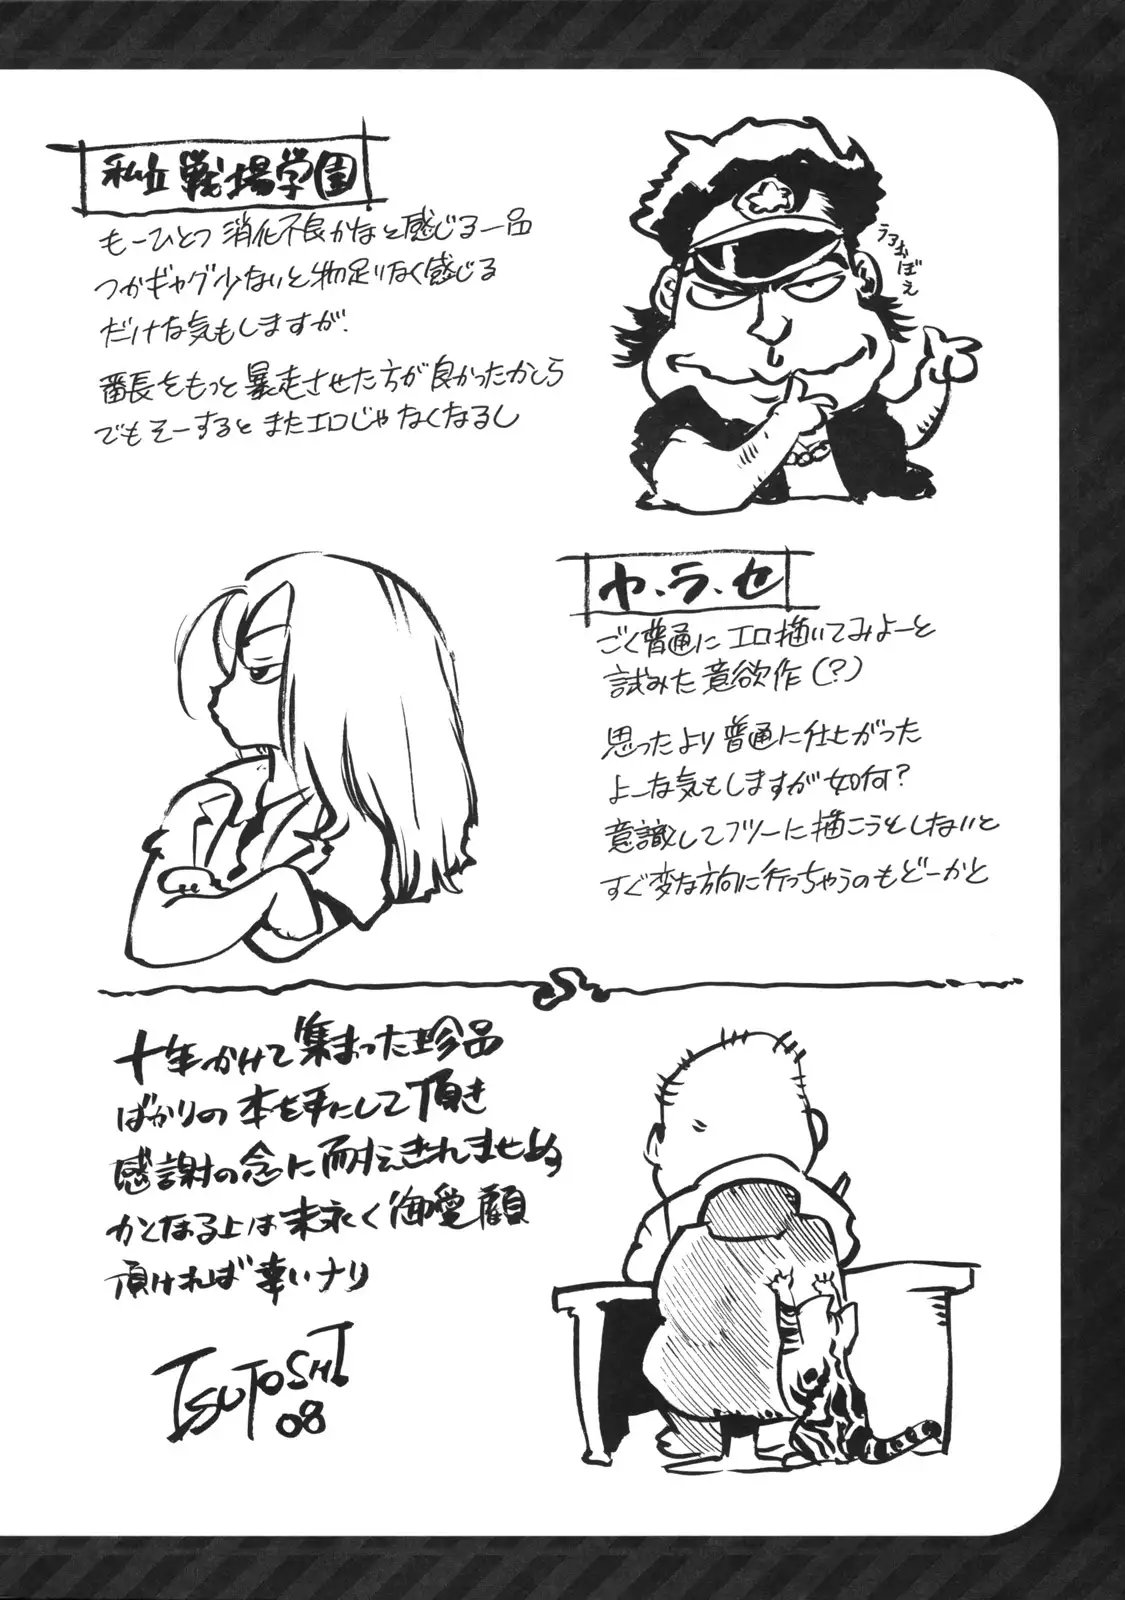 私立戦場学園
もーひとつ消化不良かなと感じる一品
つかギャグ少ないと物足りなく感じる
だけな気もしますが.
番長をもっと暴走させた方が良かったかしら
でもそーするとまたエロじゃなくなるし
ヤ・ラ・セ
ごく普通にエロ描いてみよーと
試みた意欲作(?)
思ったより普通に仕上がった
よーな気もしますが如何?
意識してフツーに描こうとしないと
すぐ変な方向に行っちゃうのもどーかと
十年かけて集まった珍品
ばかりの本を手にして頂き
感謝の念に耐えきれませぬ
かとなる上は末永く御愛顧
頂ければ幸いナリ
TSUTOSHI
08